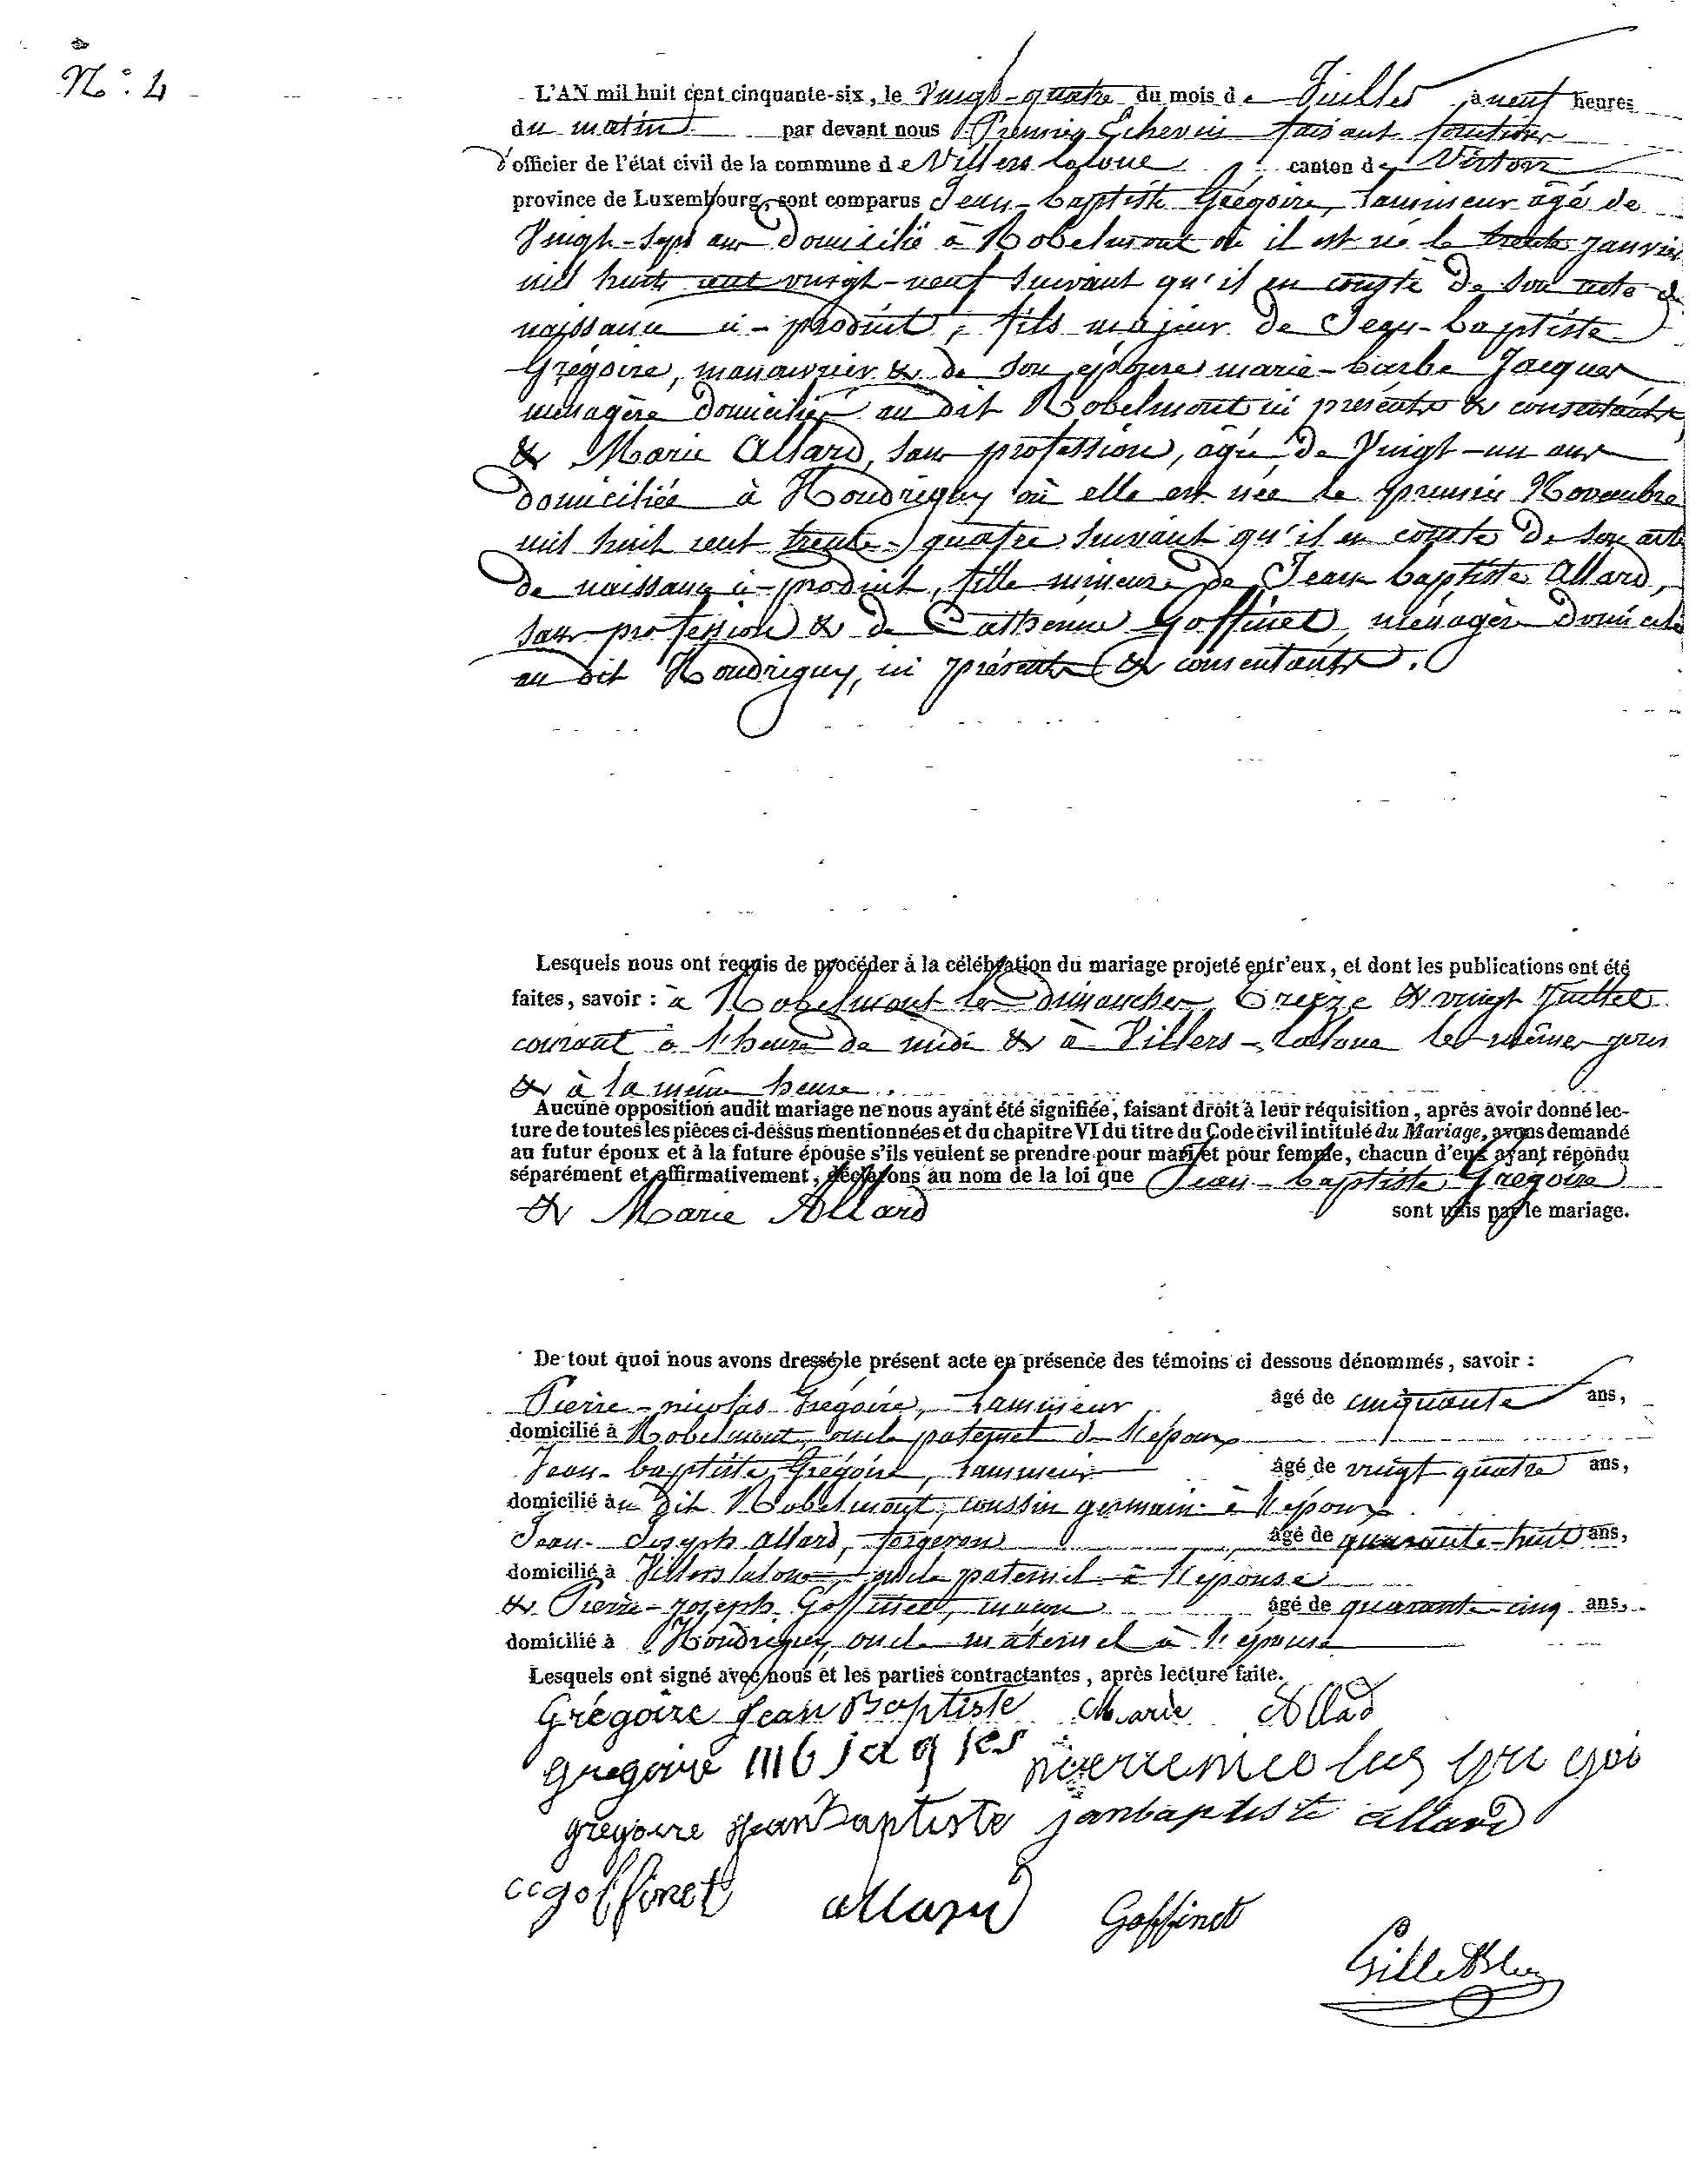 N.° 4
L'AN mil huit cent cinquante-six, le Vingt-quatre du mois de Juillet à neuf heures
du matin par devant nous Premier Echevin faisant fonctions
d'officier de l'état civil de la commune de Villers laloue canton de Virton
province de Luxembourg, sont comparus Jean-baptiste Grégoire, Lamineur âgé de
Vingt-sept ans domicilié à Robelmont où il est né le trente janvier
mil huit cent vingt-neuf suivant qu'il en conste de son acte de
naissance ci-produit, fils majeur de Jean-baptiste
Grégoire, manœuvrier & de son épouse marie-barbe Jacques
ménagère domiciliés au dit Robelmont ici présents & consentants
& Marie Allard, sans profession, âgée de Vingt-un ans
domiciliée à Houdrigny où elle est née le premier Novembre
mil huit cent trente-quatre suivant qu'il en conste de son acte
de naissance ci-produit, fille mineure de Jean baptiste Allard,
sans profession & de Catherine Goffinet, ménagère domiciliés
au dit Houdrigny, ici présents & consentants.
Lesquels nous ont requis de procéder à la célébration du mariage projeté entr'eux, et dont les publications ont été
faites, savoir : à Robelmont les dimanches treize & vingt Juillet
courant à l'heure de midi & à Villers-laloue les mêmes jours
& à la même heure.
Aucune opposition audit mariage ne nous ayant été signifiée, faisant droit à leur réquisition, après avoir donné lec-
ture de toutes les pièces ci-dessus mentionnées et du chapitre VI du titre du Code civil intitulé du Mariage, avons demandé
au futur époux et à la future épouse s'ils veulent se prendre pour mari et pour femme, chacun d'eux ayant répondu
séparément et affirmativement, déclarons au nom de la loi que Jean-baptiste Grégoire
& Marie Allard sont unis par le mariage.
De tout quoi nous avons dressé le présent acte en présence des témoins ci dessous dénommés, savoir :
Pierre-nicolas Grégoire, Lamineur âgé de cinquante ans,
domicilié à Robelmont, oncle paternel de l'époux
Jean-baptiste Grégoire, Lamineur âgé de vingt quatre ans,
domicilié au dit Robelmont, coussin germain à l'époux
Jean-Joseph Allard, forgeron âgé de quarante-huit ans,
domicilié à Villers laloue, oncle paternel à l'épouse
& Pierre-Joseph Goffinet, maçon âgé de quarante-cinq ans,
domicilié à Houdrigny, oncle maternel à l'épouse
Lesquels ont signé avec nous et les parties contractantes, après lecture faite.
Grégoire Jean Baptiste Marie Allad
gregoire mb jaqjes pierrenicolas gregoi
gregoire jean Baptiste janbaptiste allard
cc goffinet allard Goffinet